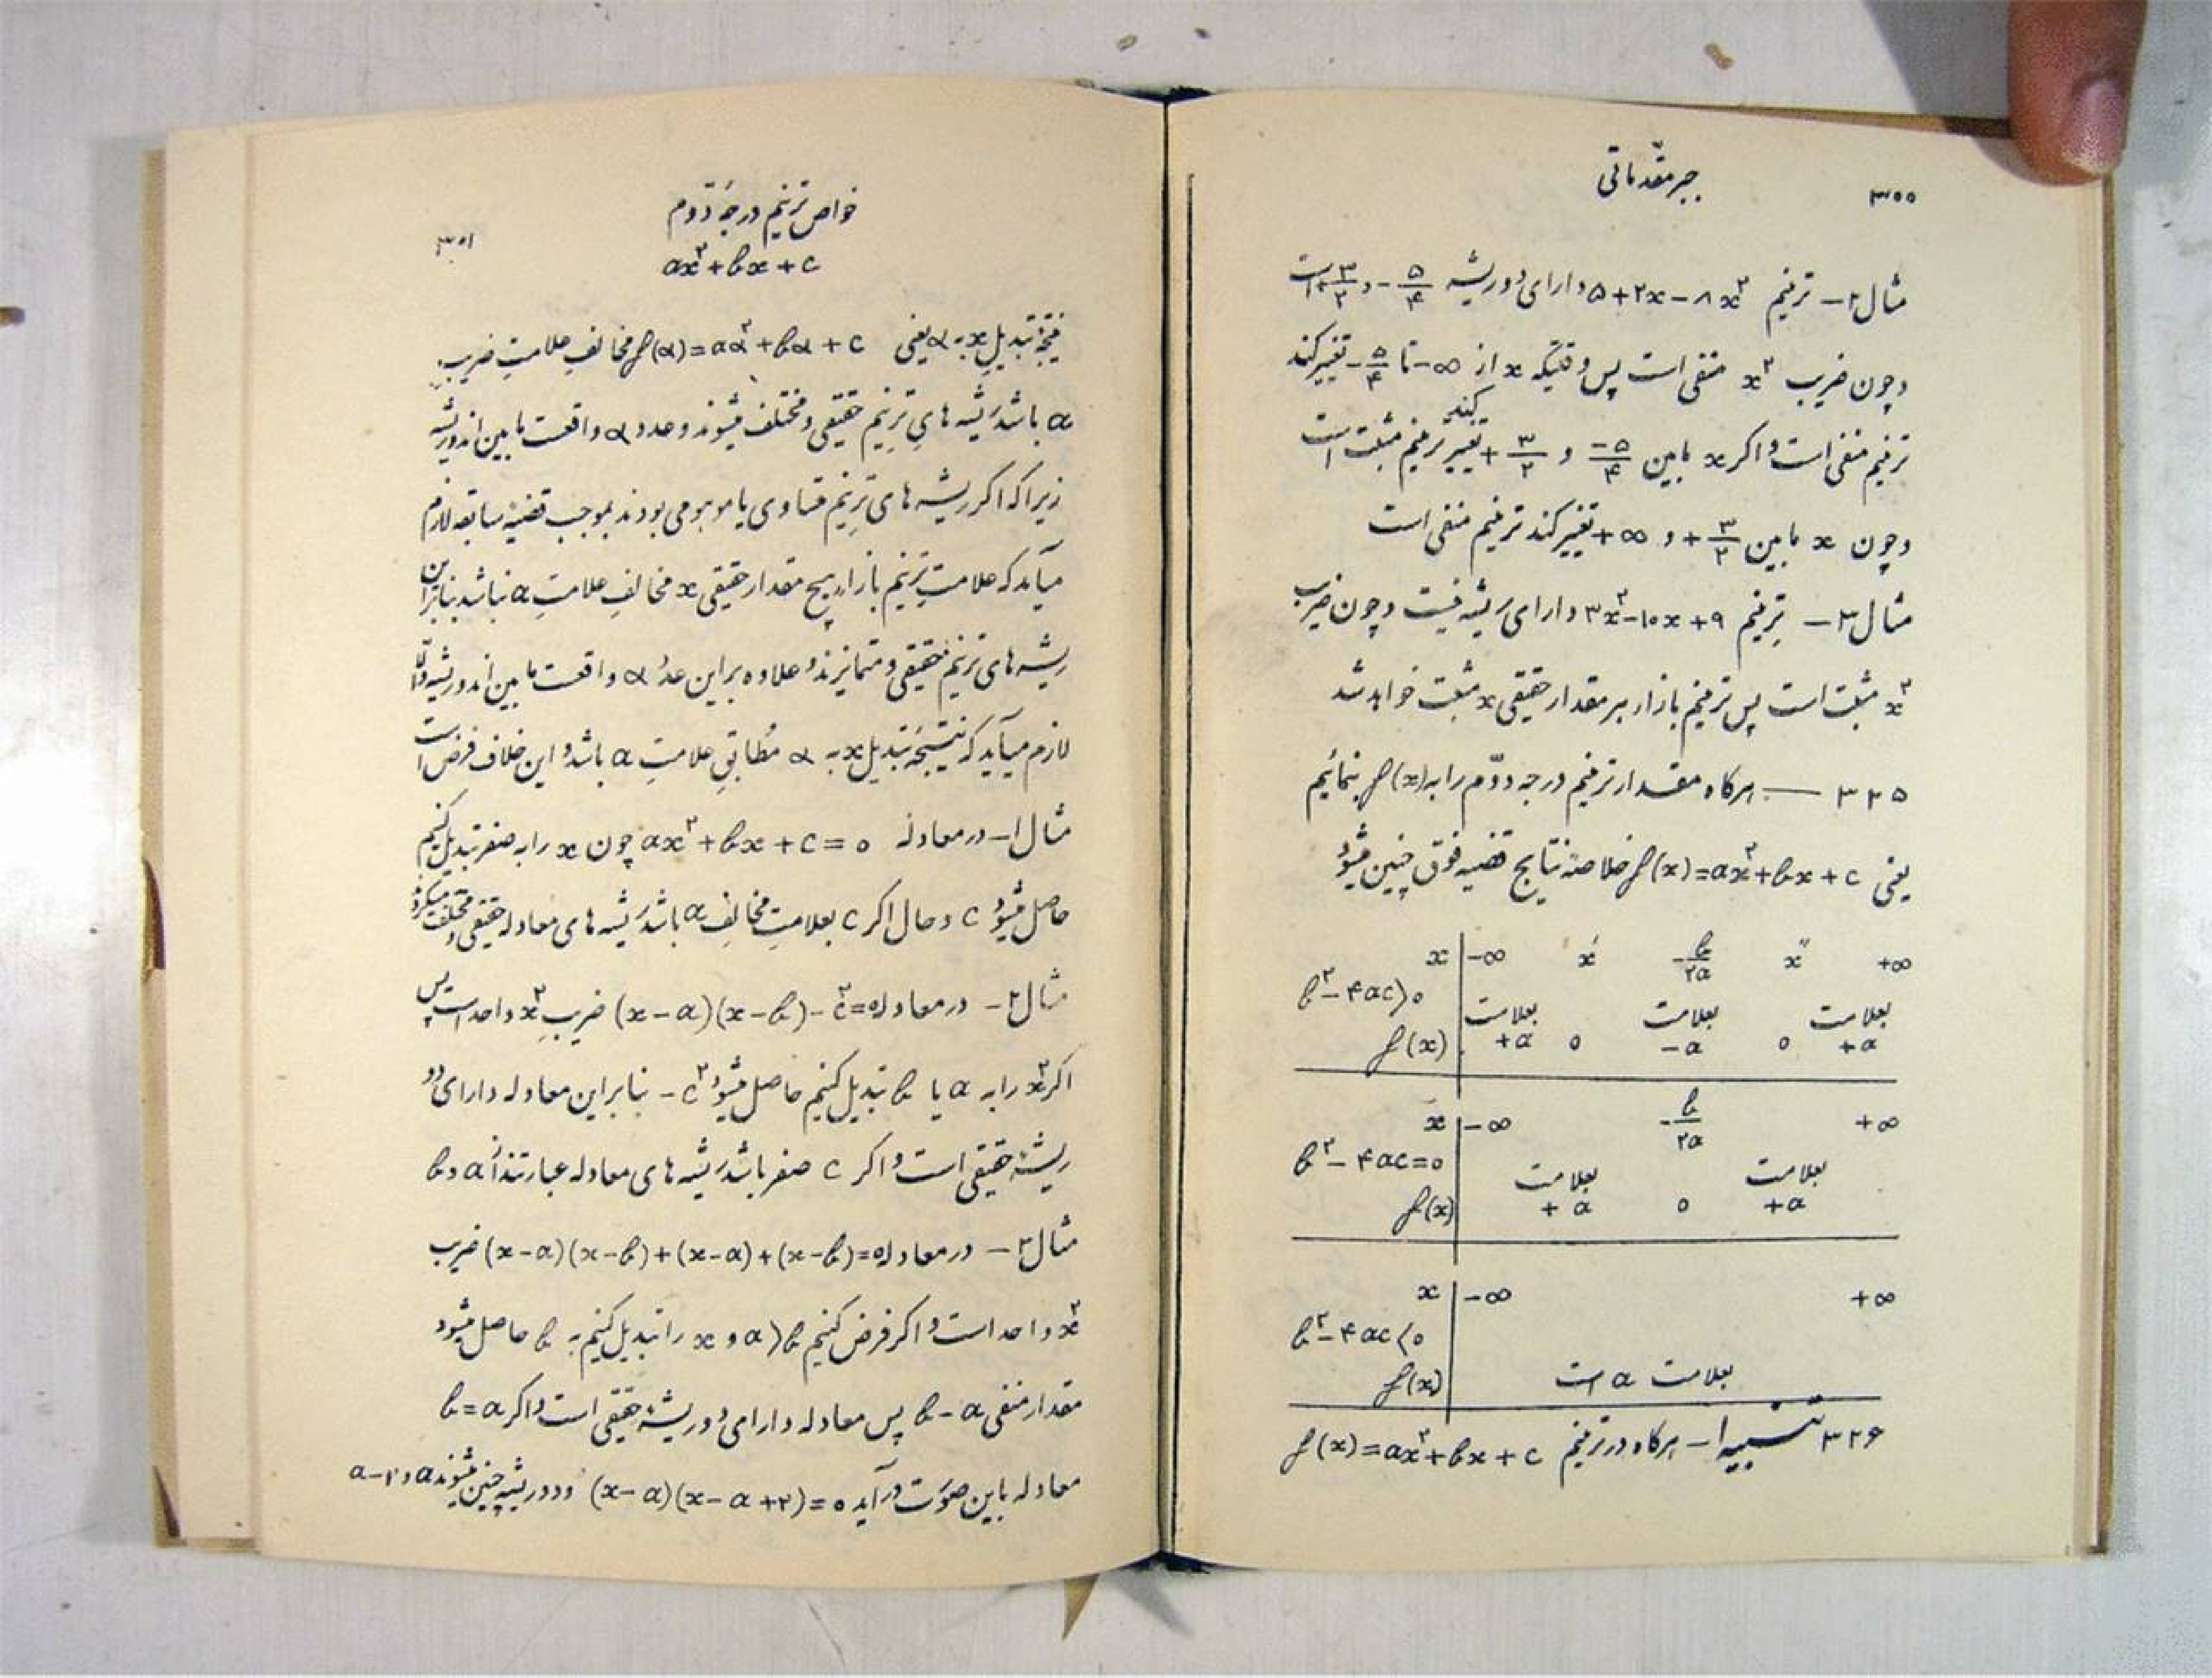 ۳۰۰
جبر مقدّماتی
مثال ۲ – ترینم ۵+۲x–۸x² دارای دو ریشه –۵/۴ و +۳/۲ است
و چون ضریب x² منفی است پس وقتیکه x از –∞ تا –۵/۴ تغییر کند
ترینم منفی است و اگر x مابین –۵/۴ و +۳/۲ تغییر کند ترینم مثبت است
و چون x مابین +۳/۲ و +∞ تغییر کند ترینم منفی است
مثال ۳ – ترینم ۳x²–۱۰x+۹ دارای ریشه نیست و چون ضریب
x² مثبت است پس ترینم بازاء هر مقدار حقیقی x مثبت خواهد شد
۳۲۵ — هرگاه مقدار ترینم درجه دوّم را به f(x) بنمائیم
یعنی f(x)=ax²+bx+c خلاصه نتایج قضیه فوق چنین میشود
x | –∞ x′ –b/۲a x″ +∞
b²–۴ac>۰
بعلامت بعلامت بعلامت
f(x) | +a ۰ –a ۰ +a
x | –∞ –b/۲a +∞
b²–۴ac=۰
بعلامت بعلامت
f(x) | +a ۰ +a
x | –∞ +∞
b²–۴ac<۰
f(x) | بعلامت a است
۳۲۶ تنبیه ۱ – هرگاه در ترینم f(x)=ax²+bx+c
خواص ترینم درجهٔ دوّم
۳۰۱
ax²+bx+c
نتیجهٔ تبدیل x به α یعنی f(α)=aα²+bα+c مخالف علامت ضریب
a باشد ریشه های ترینم حقیقی و مختلف میشوند و عدد α واقعست مابین اندو ریشه
زیرا که اگر ریشه های ترینم متساوی یا موهومی بودند بموجب قضیهٔ سابقه لازم
میآید که علامت ترینم بازاء هیچ مقدار حقیقی x مخالف علامت a نباشد بنابراین
ریشه های ترینم حقیقی و متمایزند و علاوه بر این عدد α واقعست مابین اندو ریشه والّا
لازم میآید که نتیجهٔ تبدیل x به α مطابق علامت a باشد و این خلاف فرض است
مثال ۱ – در معادله ax²+bx+c=۰ چون x را به صفر تبدیل کنیم
حاصل میشود c و حال اگر c بعلامت مخالف a باشد ریشه های معادله حقیقی و مختلف میگردد
مثال ۲ – در معادله (x–a)(x–b)–c²=۰ ضریب x² واحد است پس
اگر x را به a یا b تبدیل کنیم حاصل میشود –c² بنابراین معادله دارای دو
ریشهٔ حقیقی است و اگر c صفر باشد ریشه های معادله عبارتند از a و b
مثال ۳ – در معادله (x–a)(x–b)+(x–a)+(x–b)=۰ ضریب
x² واحد است و اگر فرض کنیم a>b و x را تبدیل کنیم به b حاصل میشود
مقدار منفی b–a پس معادله دارای دو ریشهٔ حقیقی است و اگر b=a
معادله باین صورت در آید (x–a)(x–a+۲)=۰ و دو ریشه چنین میشوند a و a–۲